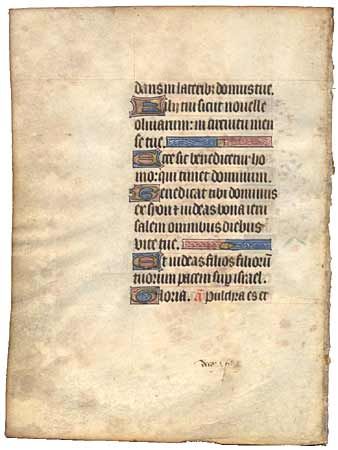 dans in laterib; domus tue.
Filii tui sicut novelle
olivarum: in circuitu men
se tue.
Ecce sic benedicetur ho
mo: qui timet dominum.
Benedicat tibi dominus
ex syon et videas bona ieru
salem omnibus diebus
vite tue.
Et videas filios filiorum
tuorum pacem sup israel.
Gloria. a Pulchra es et